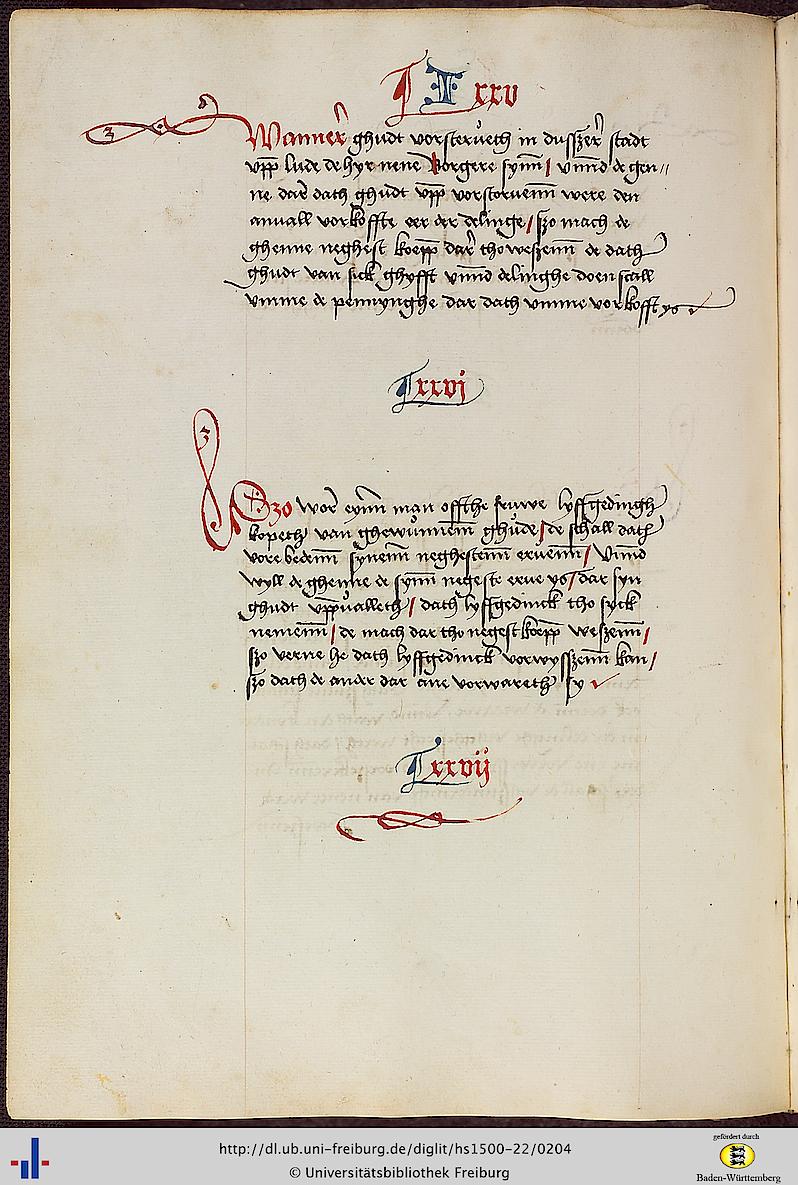 I xxv
Wanner ghudt vorsterueth in dusszer stadt
vpp lude de hyr nene borgere synn / vnnd de gen„
ne dar dath ghudt vpp vorstoruenn were den
anuall vorkoffte eer der delinge / szo mach de
ghenne neghest koepp dar tho weszenn de dath
ghudt van sick ghyfft vnnd delinghe doen scall
vmme de pennynghe dar dath vmme vorkofft ys
xxvj
Szo wor eynn man offthe fruwe lyffgedingh
kopeth van ghewunnenn ghude / de schall dath
vore bedenn synenn neghestenn eruenn / vnnd
wyll de ghenne de synn negeste erue ys / dar syn
ghudt vppualleth / dath lyffgedinck tho syck
nemenn / de mach dar tho negest koepp weszenn /
szo verne he dath lyffgedinck vorwysszenn kan /
szo dath de ander dar ane vorwareth sy
xxvij
http://dl.ub.uni-freiburg.de/diglit/hs1500-22/0204
© Universitätsbibliothek Freiburg
gefördert durch
Baden-Württemberg